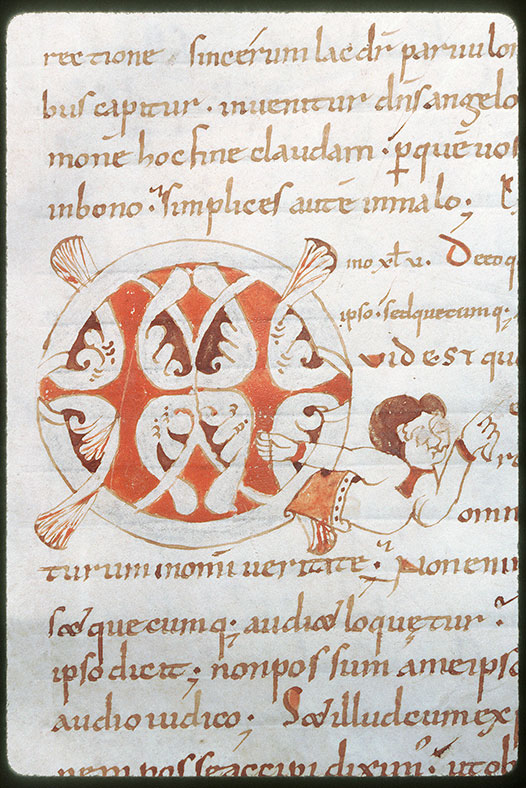 rectione sincerum lac dr̄ paruulor
bus capitur · invenitur dn̄s angelo
monē hoc fine claudam · ꝑ quē uos
in bono · simplices autē in malo ;
mo xl vi · De eo q
ipso · sed quecumq;
vid est qu
omn
turum in omni veritate · Non enim
sed quecumq; audiet loquetur
ipso dicit ; non possum a me ipso
audio iudico ; Sed illud cum ex
nem posse accipi diximꝰ · utob